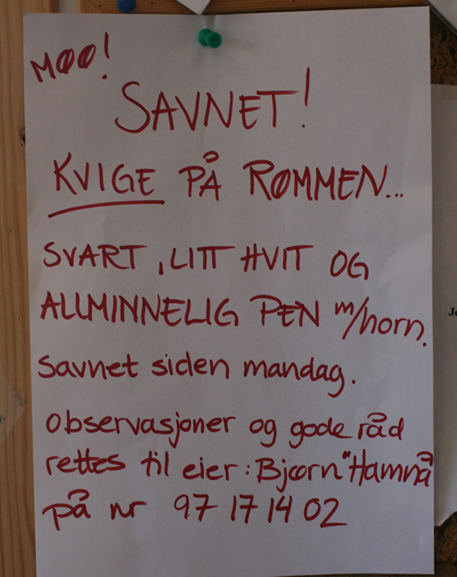 MØØ!
SAVNET!
KVIGE PÅ RØMMEN...
SVART, LITT HVIT OG
ALLMINNELIG PEN m/horn.
Savnet siden mandag.
Observasjoner og gode råd
rettes til eier: Bjørn "Hamnå
på nr 97 17 14 02